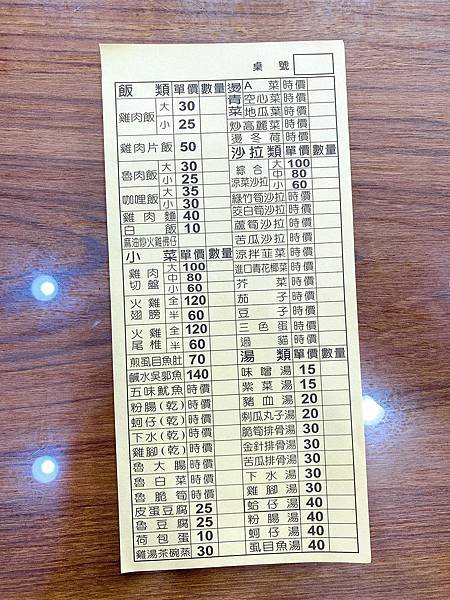 桌號
飯類 單價 數量
雞肉飯 大 30
小 25
雞肉片飯 50
魯肉飯 大 30
小 25
咖哩飯 大 35
小 30
雞肉麵 40
白飯 10
麻油炒火雞佛仔
小菜 單價 數量
雞肉切盤 大 100
中 80
小 60
火雞翅膀 全 120
半 60
火雞尾椎 全 120
半 60
煎虱目魚肚 70
鹹水吳郭魚 140
五味魷魚 時價
粉腸(乾) 時價
蚵仔(乾) 時價
下水(乾) 時價
雞腳(乾) 時價
魯大腸 時價
魯白菜 時價
魯脆筍 時價
皮蛋豆腐 25
魯豆腐 25
荷包蛋 10
雞湯茶碗蒸 30
燙青菜 A菜 時價
空心菜 時價
地瓜葉 時價
炒高麗菜 時價
燙冬荷 時價
沙拉類 單價 數量
綜合涼菜沙拉 大 100
中 80
小 60
綠竹筍沙拉 時價
茭白筍沙拉 時價
蘆筍沙拉 時價
苦瓜沙拉 時價
涼拌韭菜 時價
進口青花椰菜 時價
芥菜 時價
茄子 時價
豆子 時價
三色蛋 時價
過貓 時價
湯類 單價 數量
味噌湯 15
紫菜湯 15
豬血湯 20
刺瓜丸子湯 20
脆筍排骨湯 30
金針排骨湯 30
苦瓜排骨湯 30
下水湯 30
雞腳湯 30
蛤仔湯 40
粉腸湯 40
蚵仔湯 40
虱目魚湯 40